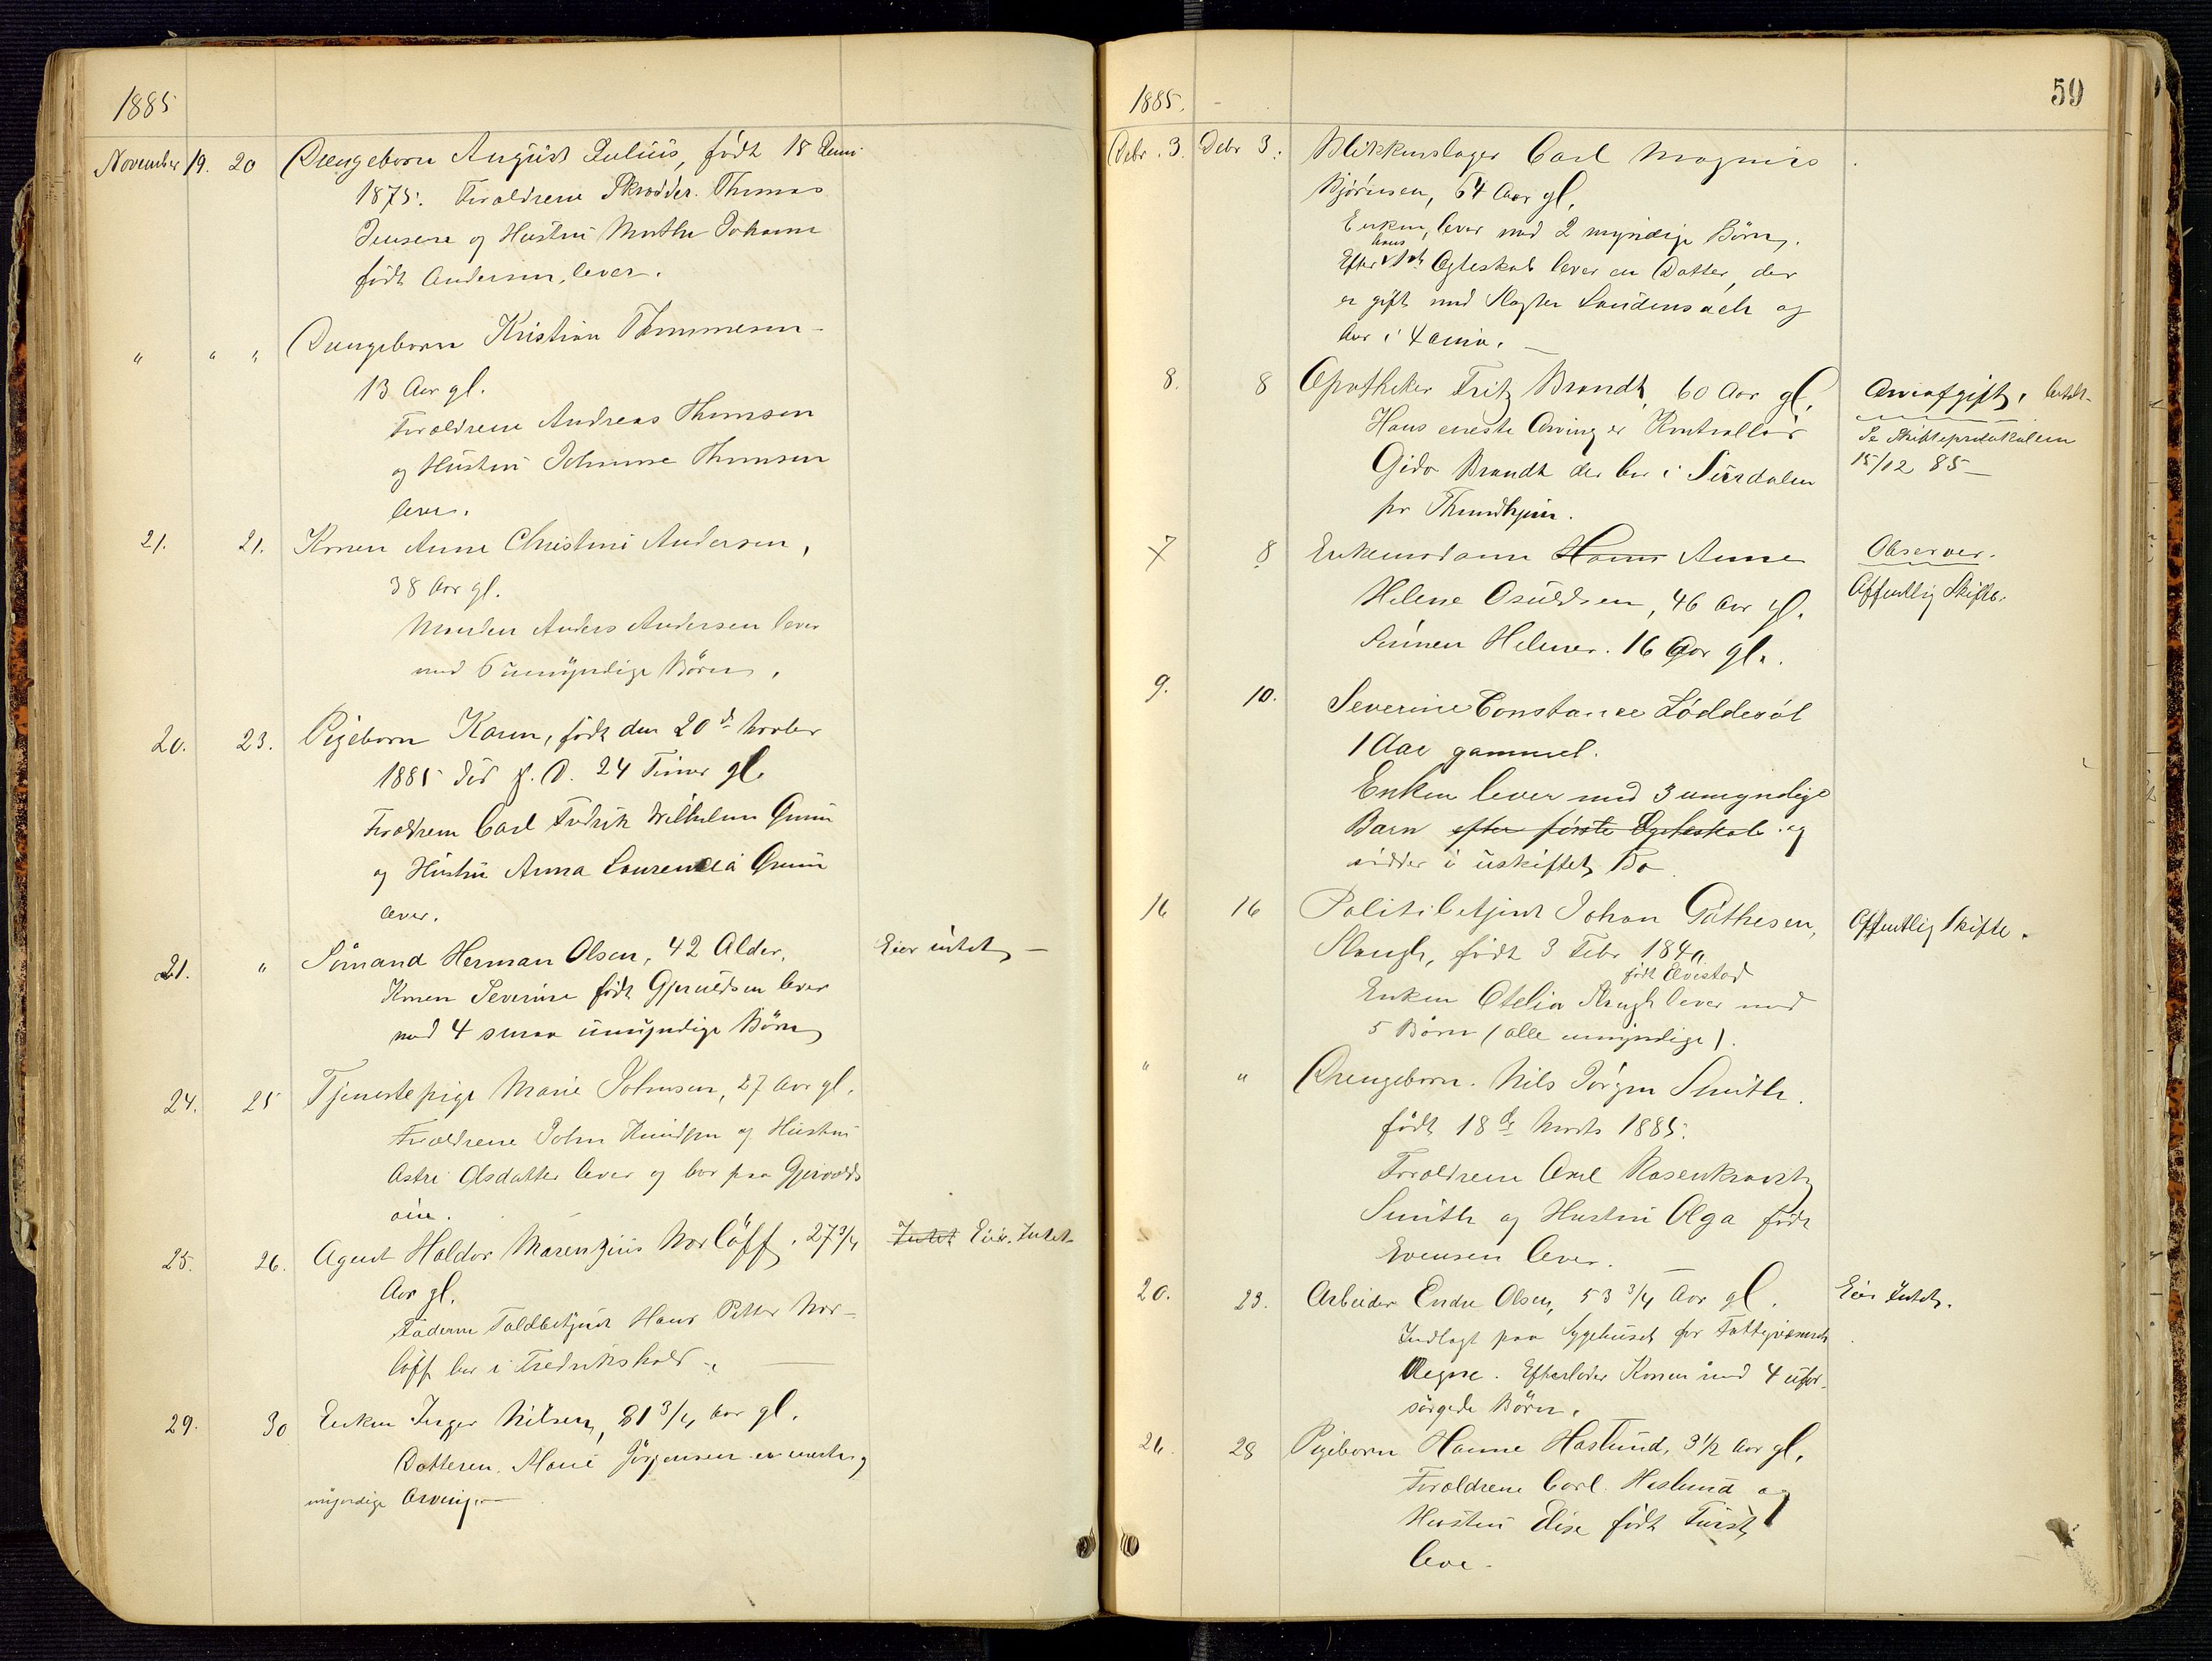 1885
November 19. 20 Drengebarn August Julius, født 18 Juni
1875. Forældrene Skrædder Thomas
Jensen og Hustru Marthe Johanne
født Andersen, lever.
" " " Drengebarn Kristian Thommesen
13 Aar gl.
Forældrene Andreas Thomsen
og Hustru Johanne Thomsen
lever.
21. 21. Konen Anne Christine Andersen,
38 Aar gl.
Manden Anders Andersen lever
med 6 umyndige Børn,
20. 23. Pigebarn Karen, født den 20de Novber
1885 død s. D. 24 Timer gl.
Forældrene Carl Fredrik Wilhelm
og Hustru Anna Laurendia
lever.
21. " Sömand Herman Olsen, 42 Alder, Eier intet
Konen Severine født Gjeruldsen lever
med 4 smaa umyndige Børn
24. 25 Tjenestepige Marie Johnsen, 27 Aar gl.
Forældrene John Knudsen og Hustru
Astri Olsdatter lever og bor paa Gjervolds
øen.
25. 26. Agent Haldor Marenzius Norløff, 27 3/4 Intet Eier Intet
Aar gl.
Faderen Toldbetjent Hans Petter Nor-
løff bor i Fredrikshald.
29. 30 Enken Inger Nilsen, 81 3/4 Aar gl.
Datteren Marie Jörgensen er eneste
myndige Arving.
59
1885.
Debr. 3. Debr 3. Blikkenslager Carl Magnus
Bjørnsen, 64 Aar gl.
Enken, lever med 2 myndige Børn.
hans
Efter 1st Egteskab lever en Datter, der
er gift med Slagter og
bor i
8. 8 Apotheker Fritz Brandt, 60 Aar gl. Arveafgift, betalt
Hans eneste Arving er Kontrollør Se Skifteprotokollen
Brandt der bor i Surdalen 15/12 85
pr Throndhjem.
7 8 Enkemadame Hanne Anne Observer.
Helene Osuldsen, 46 Aar gl. Offentlig Skifte.
Sønnen Helmer. 16 Aar gl.
9. 10. Severine Constance Löddesöl
1 Aar gammel.
Enken lever med 3 umyndige
Barn efter förste Egteskab og
sidder i uskiftet Bo.
16 16 Politibetjent Johan Gathesen Offentlig Skifte.
født 3 Febr 184
født
Enken Otelia lever med
5 Børn (alle umyndige).
" " Drengebarn Nils Jörgen Smith.
født 18de Marts 1885.
Forældrene Axel Rosenkrantz
Smith og Hustru Olga født
Evensen lever.
20. 23. Arbeider Endre Olsen, 53 3/4 Aar gl. Eier Intet.
Indlagt paa Sygehuset for Fattigvæsenets
Regne. Efterlader Konen med 4 ufor-
sørgede Børn.
26. 28 Pigebarn Hanne Haslund, 3 1/2 Aar gl.
Forældrene Carl Haslund og
Hustru Elise født Fürst
leve.